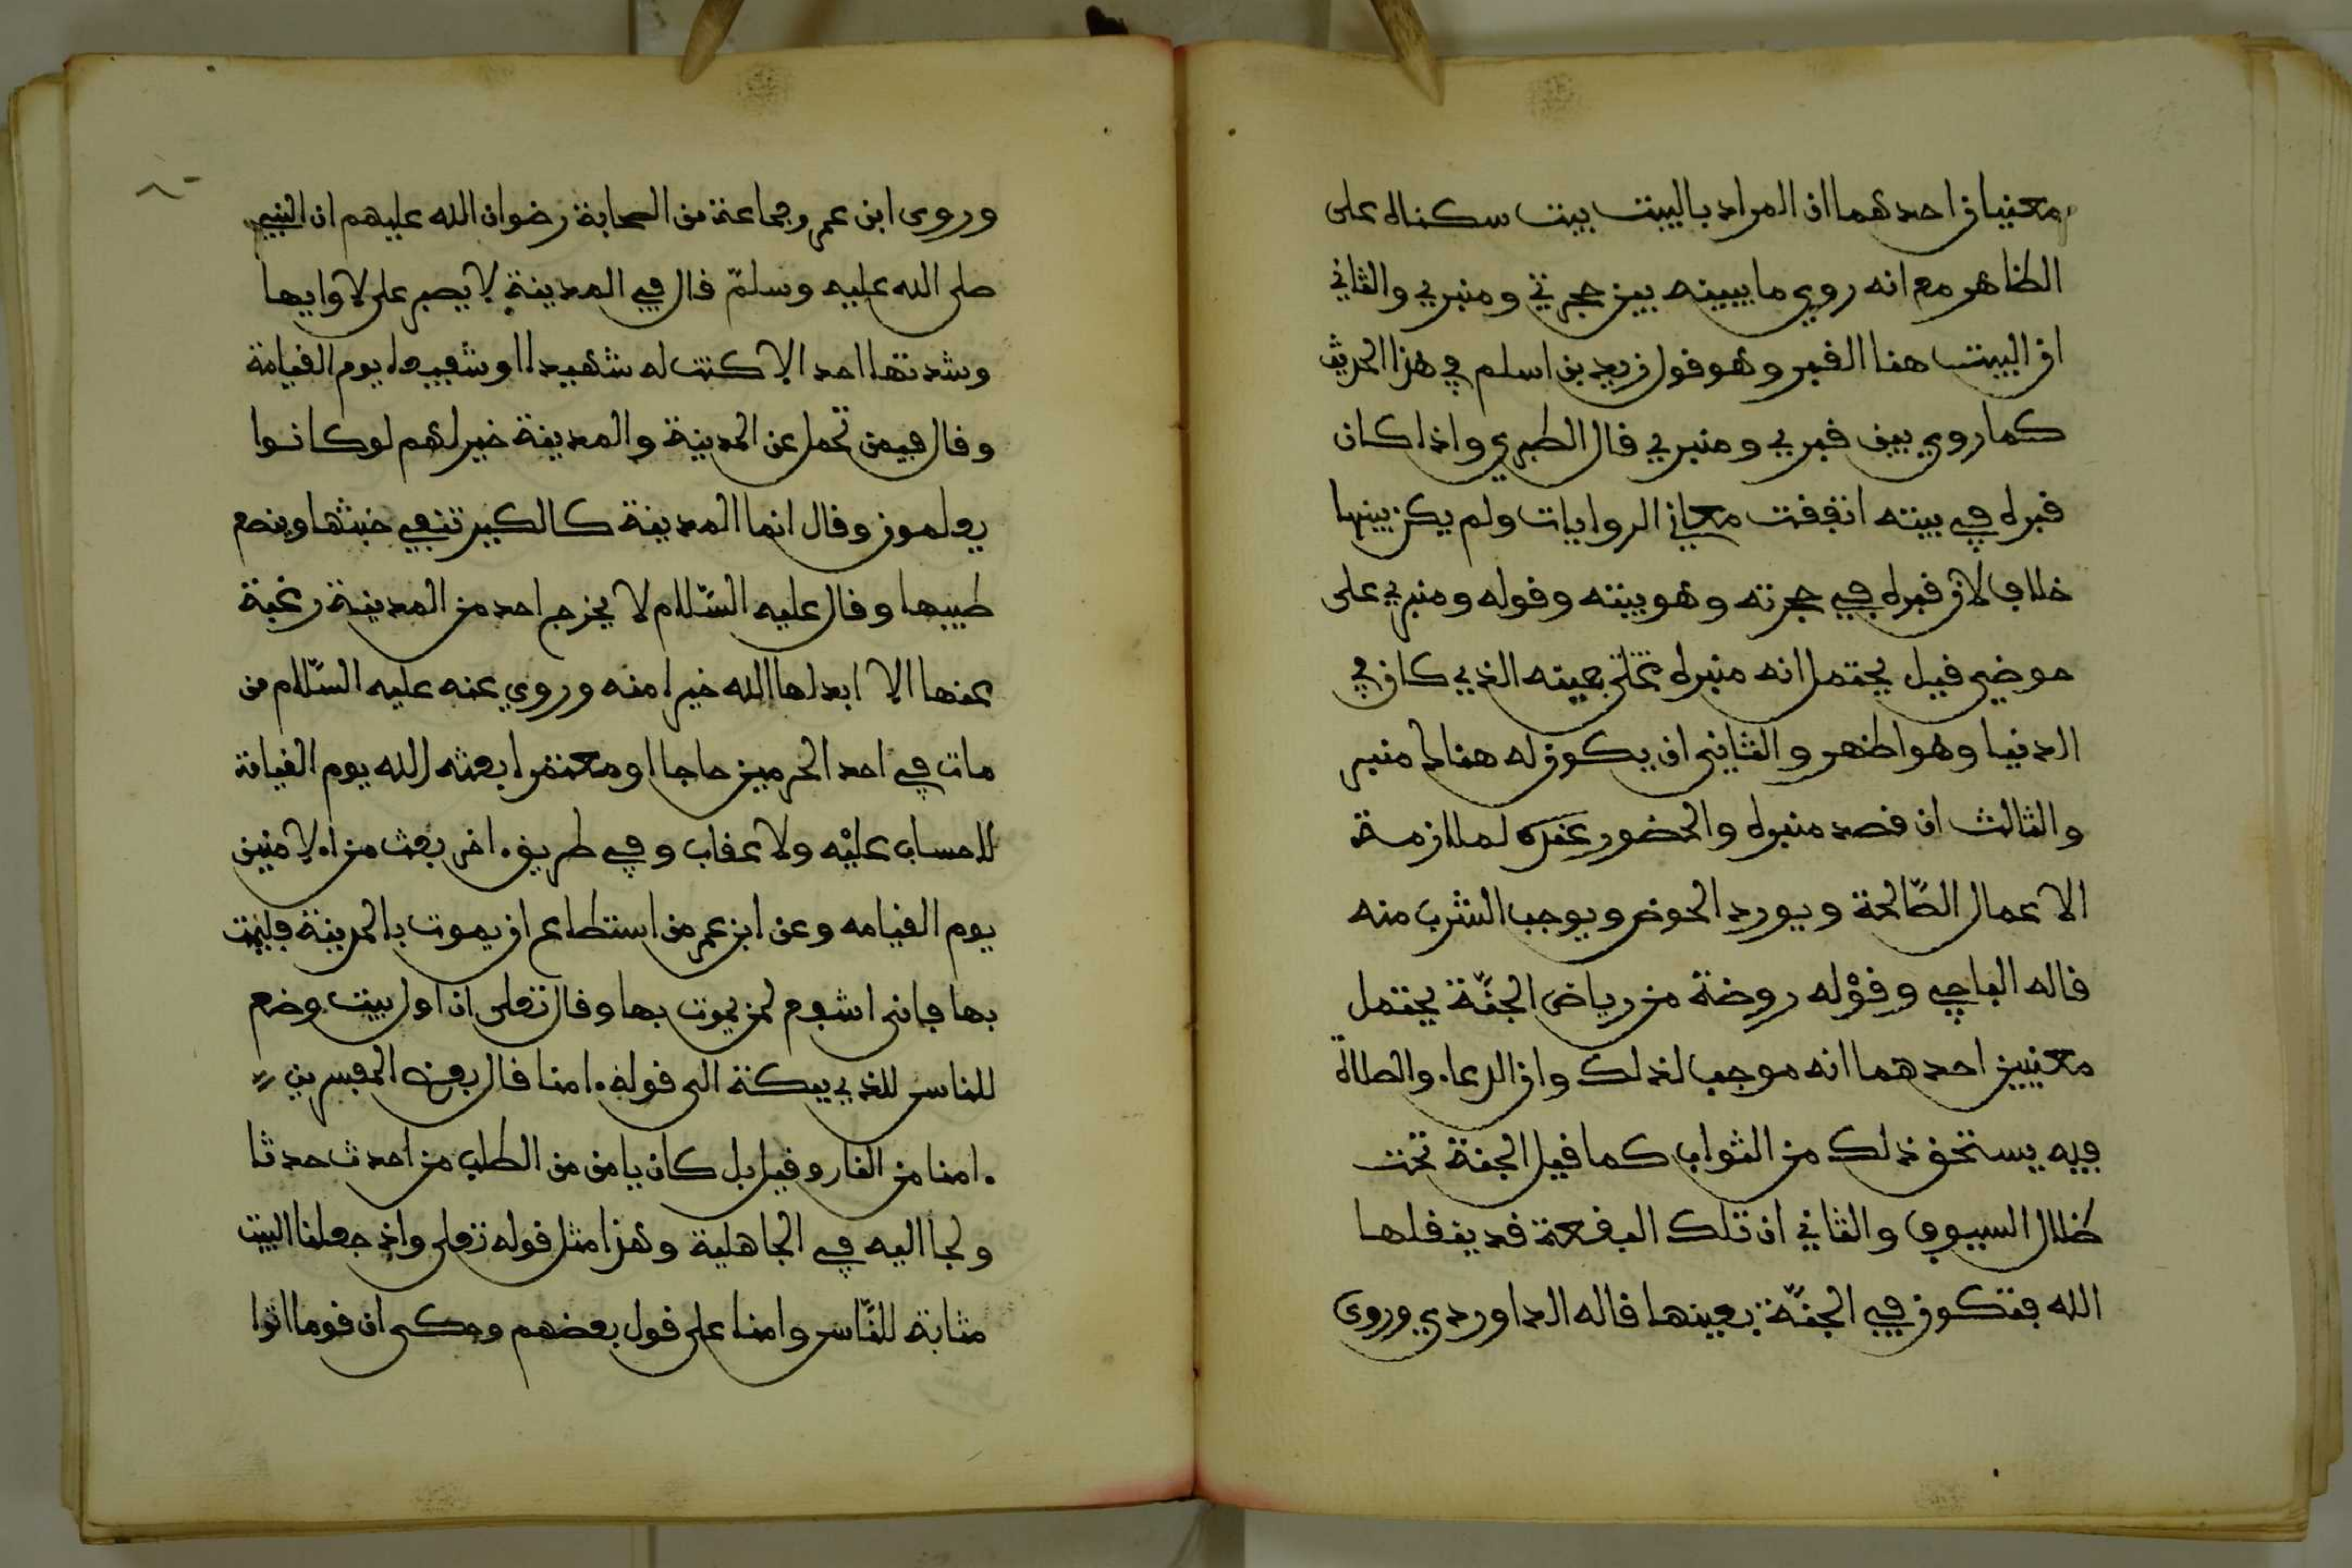 معنيان احدهما ان المراد بالبيت بيت سكناه على
الظاهر مع انه روي ما يبينه بين حجرتي ومنبري والثاني
ان البيت هنا القبر وهو قول زيد بن اسلم في هذا الحديث
كما روي بين قبري ومنبري قال الطبري واذا كان
قبره في بيته اتفقت معاني الروايات ولم يكن بينها
خلاف لان قبره في حجرته وهو بيته وقوله ومنبري على
حوضي قيل يحتمل انه منبره بعينه الذي كان في
الدنيا وهو اظهر والثاني ان يكون له هناك منبر
والثالث ان قصد منبره والحضور عنده لملازمة
الاعمال الصّالحة ويورد الحوض ويوجب الشرب منه
قاله الباجي وقوْله روضة من رياض الجنّة يحتمل
معنيين احدهما انه موجب لذلك وان الدعاء والصلاة
فيه يستحق ذلك من الثواب كما قيل الجنة تحت
ظلال السيوف والثاني ان تلك البقعة قد ينقلها
الله فتكون في الجنّة بعينها قاله الداوردي وروى
وروى ابن عمر وجماعة من الصحابة رضوان الله عليهم ان النبي
صلى الله عليه وسلمّ قال في المدينة لا يصبر على لاوايها
وشدتها احد الا كنت له شهيدا او شفيعا يوم القيامة
وقال فيمن تحمل عن المدينة والمدينة خير لهم لو كانوا
يعلمون وقال انما المدينة كالكير تنفي خبثها وينصع
طيبها وقال عليه السّلام لا يخرج احد من المدينة رغبة
عنها الا ابدلها الله خيرا منه وروي عنه عليه السّلام من
مات في احد الحرمين حاجا او معتمرا بعثه الله يوم القيامة
لا حساب عليْه ولا عذاب وفي طريق ءاخر بعث من الامنين
يوم القيامه وعن ابن عمر من استطاع ان يموت بالمدينة فليمت
بها فاني اشفع لمن يموت بها وقال تعلى ان اول بيت وضع
للناس للذي ببكة الى قوله ءامنا قال بعض المفسرين
ءامنا من النار وقيل بل كان يامن من الطلب من احدث حدثا
ولجا اليه في الجاهلية وهذا مثل قوله تعلى واذ جعلنا البيت
مثابة للنّاس وامنا على قول بعضهم وحكى ان قوما اتوا